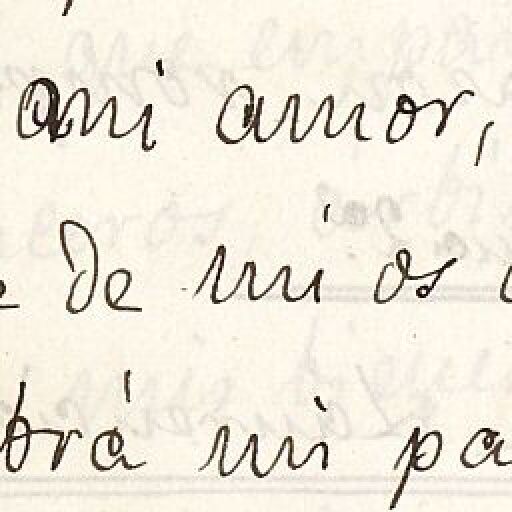 a mi amor,
e de mi os
brá mi pa